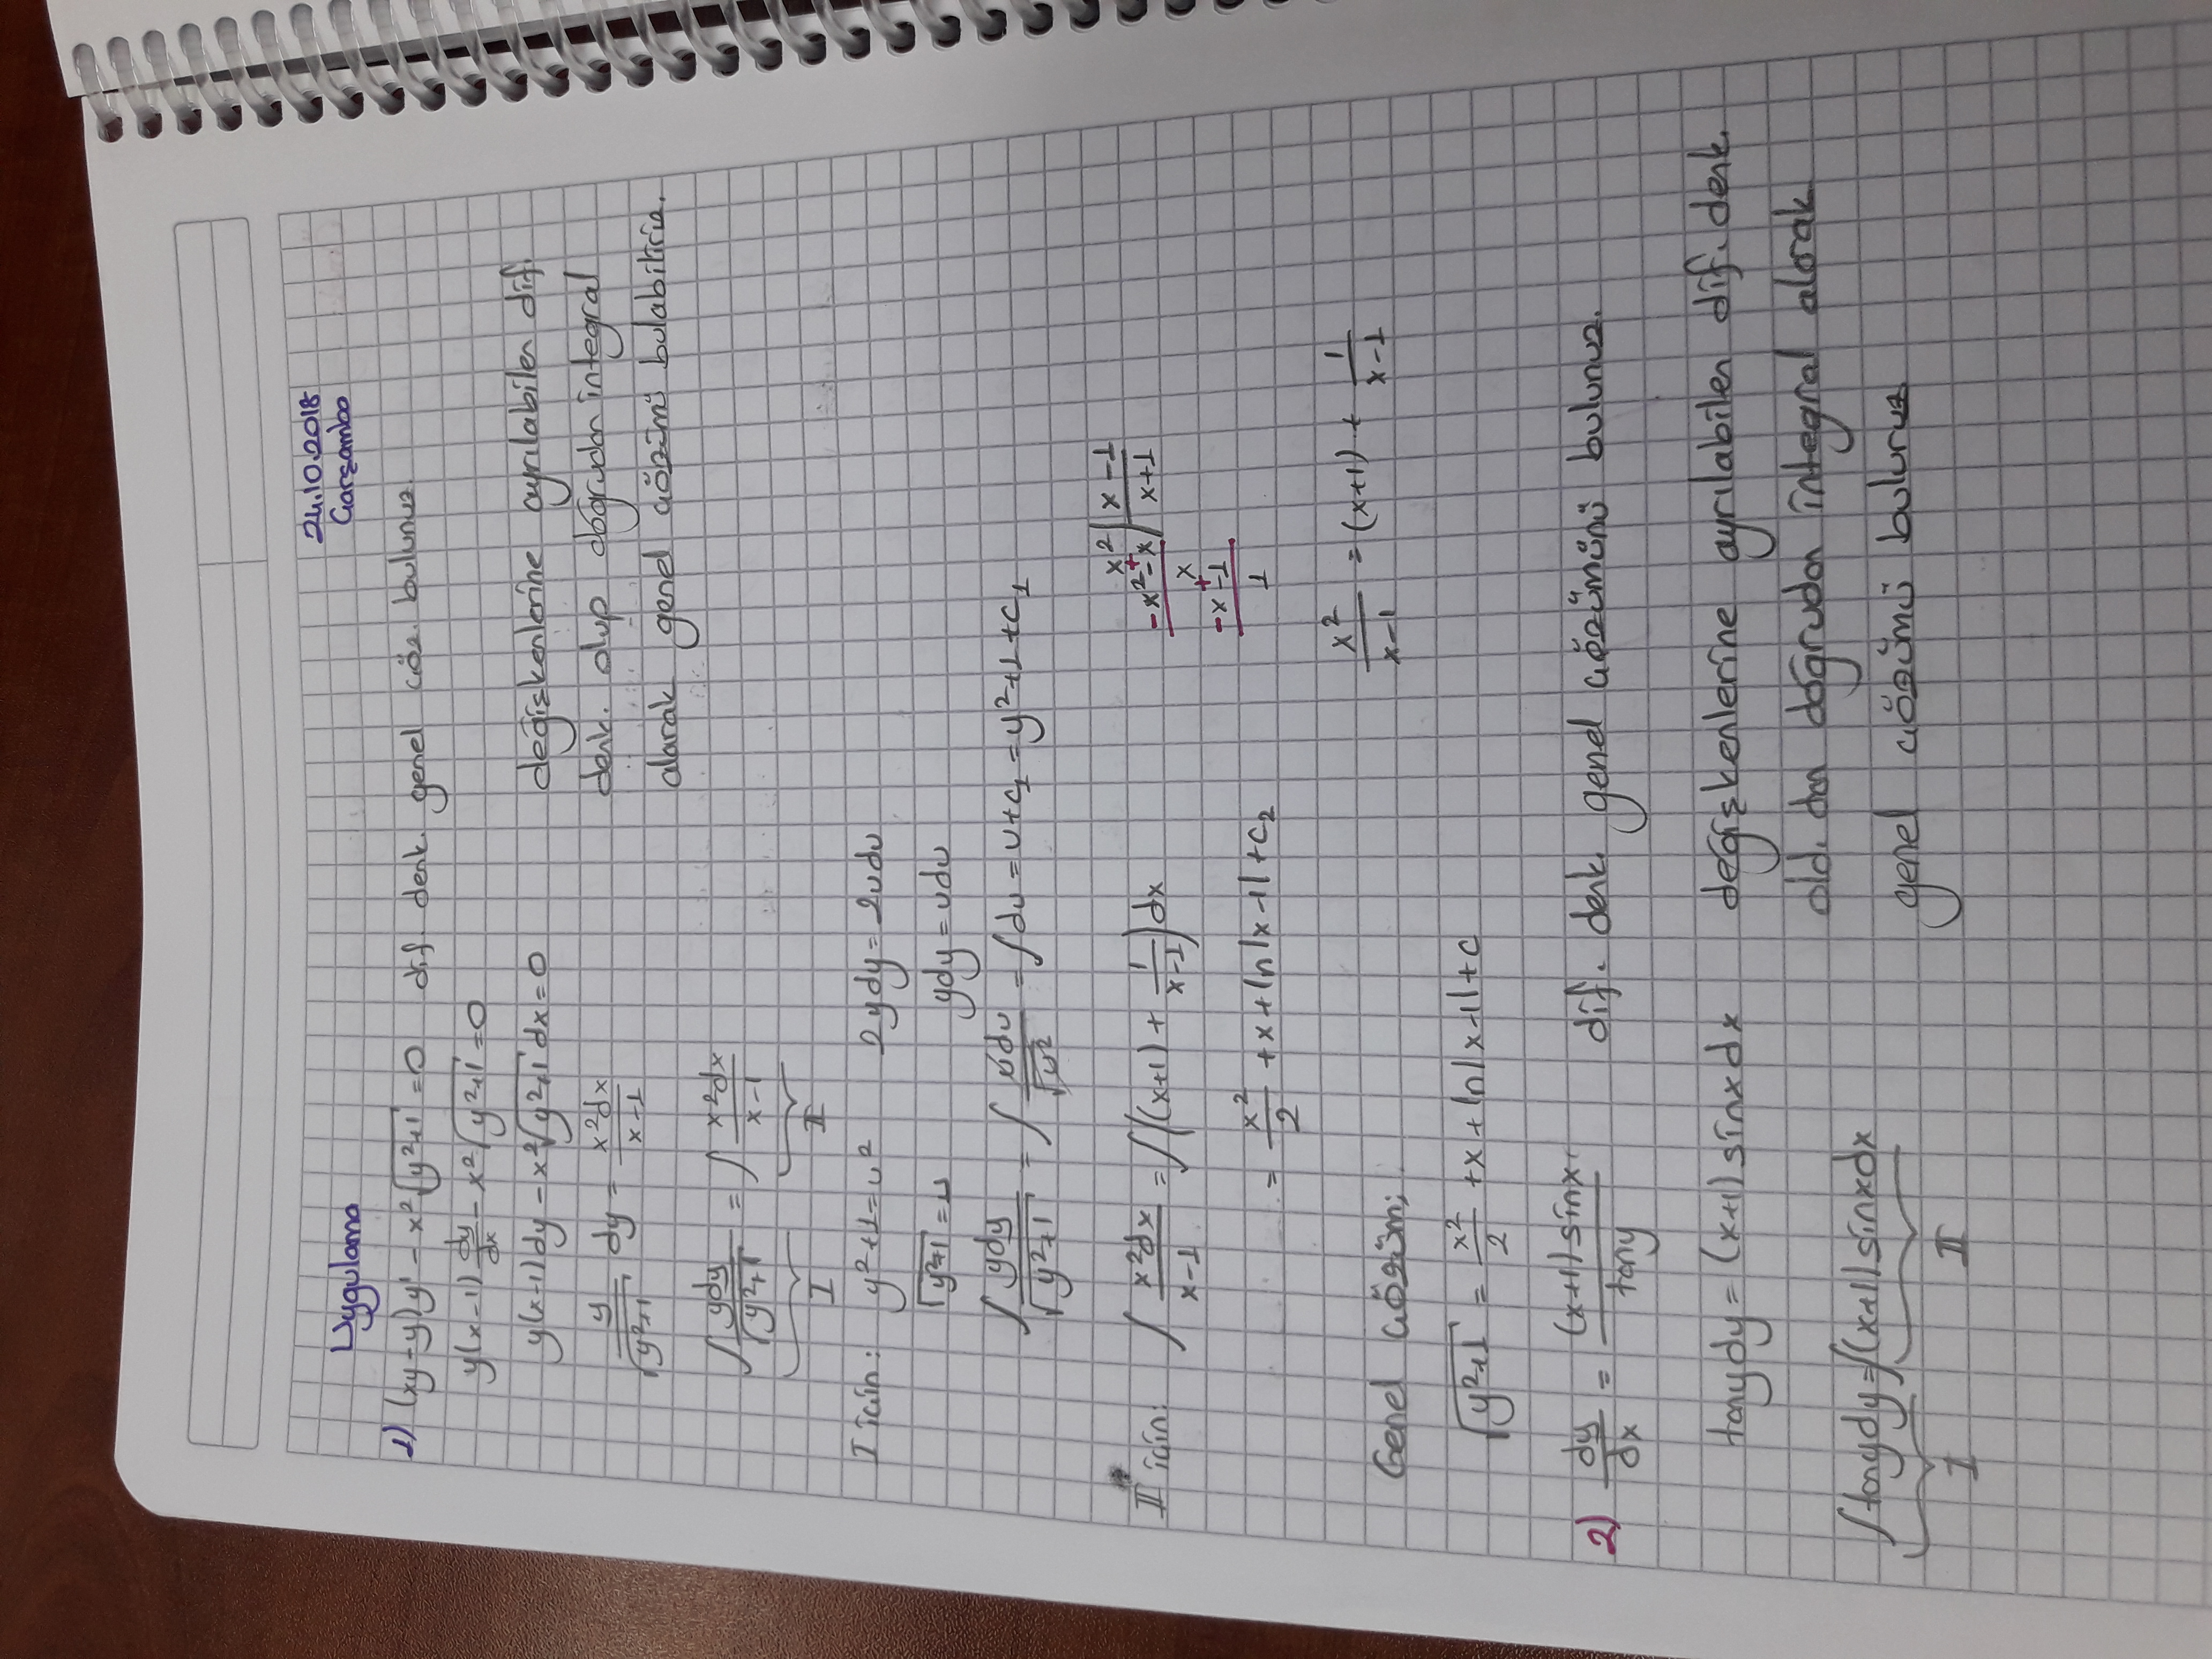 24.10.2018
Uygulama Çarşamba
1) (xy-y)y' - x²√(y²+1) = 0 dif. denk. genel çöz. bulunuz.
y(x-1) dy/dx - x²√(y²+1) = 0
y(x-1)dy - x²√(y²+1) dx = 0 değişkenlerine ayrılabilen dif.
y/√(y²+1) dy = x²dx/(x-1) denk. olup doğrudan integral
alarak genel çözümü bulabiliriz.
∫ ydy/√(y²+1) = ∫ x²dx/(x-1)
I II
I için: y²+1=u² 2ydy = 2udu
√(y²+1) = u ydy = udu
∫ ydy/√(y²+1) = ∫ udu/√u² = ∫du = u+c₁ = y²+1+c₁
x² | x-1
II için: ∫ x²dx/(x-1) = ∫((x+1) + 1/(x-1))dx -x²-+x | x+1
x
-x-+1
= x²/2 +x+ln|x-1|+c₂ 1
x²/(x-1) = (x+1) + 1/(x-1)
Genel çözüm;
√(y²+1) = x²/2 +x+ln|x-1|+c
2) dy/dx = (x+1)sinx/tany dif. denk. genel çözümünü bulunuz.
tanydy = (x+1)sinxdx değişkenlerine ayrılabilen dif. denk.
old. dan doğrudan integral alarak
∫tanydy = ∫(x+1)sinxdx
genel çözümü buluruz
I II